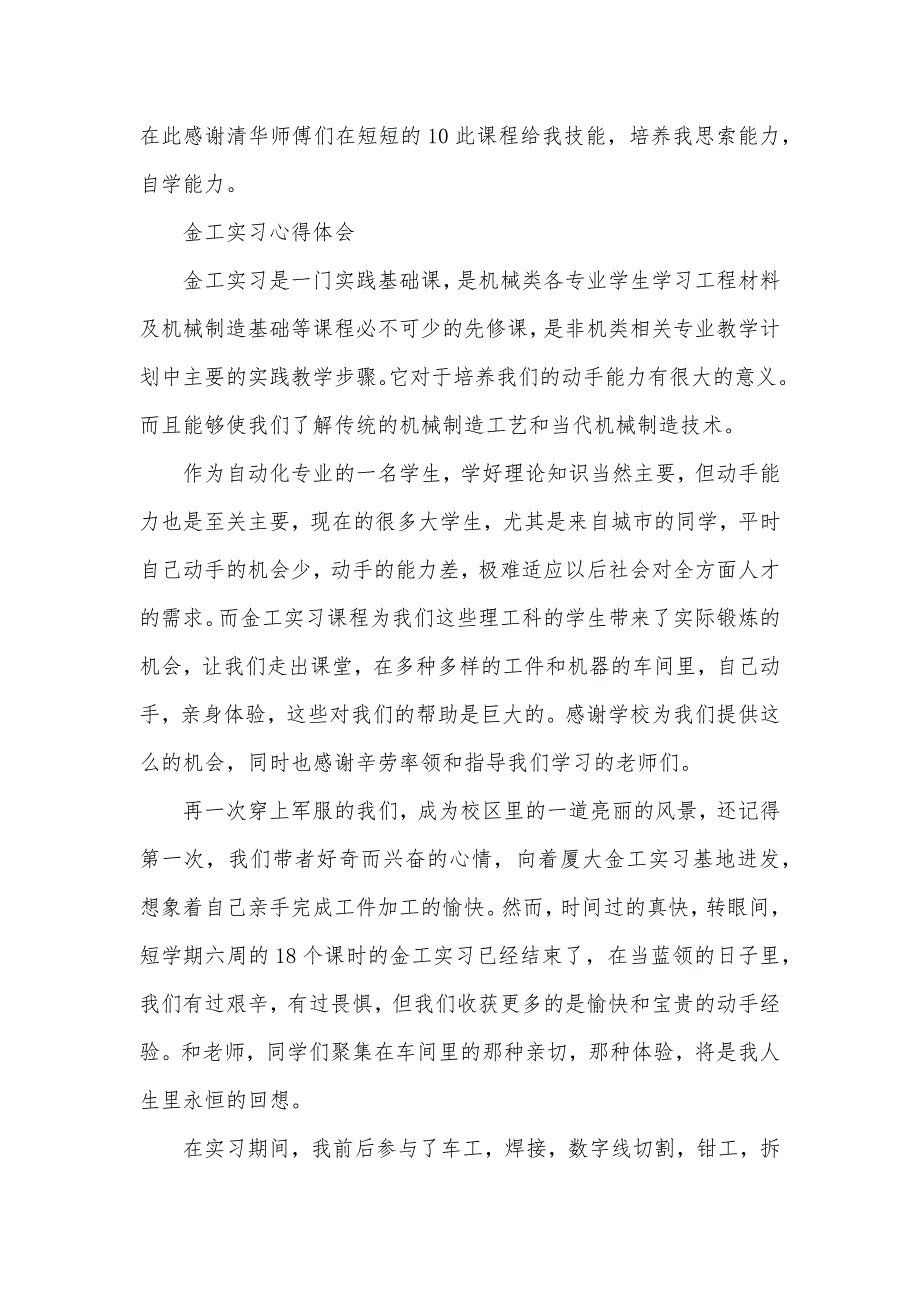 在此感谢清华师傅们在短短的 10 此课程给我技能，培养我思索能力，
自学能力。
金工实习心得体会
金工实习是一门实践基础课，是机械类各专业学生学习工程材料
及机械制造基础等课程必不可少的先修课，是非机类相关专业教学计
划中主要的实践教学步骤。它对于培养我们的动手能力有很大的意义。
而且能够使我们了解传统的机械制造工艺和当代机械制造技术。
作为自动化专业的一名学生，学好理论知识当然主要，但动手能
力也是至关主要，现在的很多大学生，尤其是来自城市的同学，平时
自己动手的机会少，动手的能力差，极难适应以后社会对全方面人才
的需求。而金工实习课程为我们这些理工科的学生带来了实际锻炼的
机会，让我们走出课堂，在多种多样的工件和机器的车间里，自己动
手，亲身体验，这些对我们的帮助是巨大的。感谢学校为我们提供这
么的机会，同时也感谢辛劳率领和指导我们学习的老师们。
再一次穿上军服的我们，成为校区里的一道亮丽的风景，还记得
第一次，我们带者好奇而兴奋的心情，向着厦大金工实习基地进发，
想象着自己亲手完成工件加工的愉快。然而，时间过的真快，转眼间，
短学期六周的 18 个课时的金工实习已经结束了，在当蓝领的日子里，
我们有过艰辛，有过畏惧，但我们收获更多的是愉快和宝贵的动手经
验。和老师，同学们聚集在车间里的那种亲切，那种体验，将是我人
生里永恒的回想。
在实习期间，我前后参与了车工，焊接，数字线切割，钳工，拆